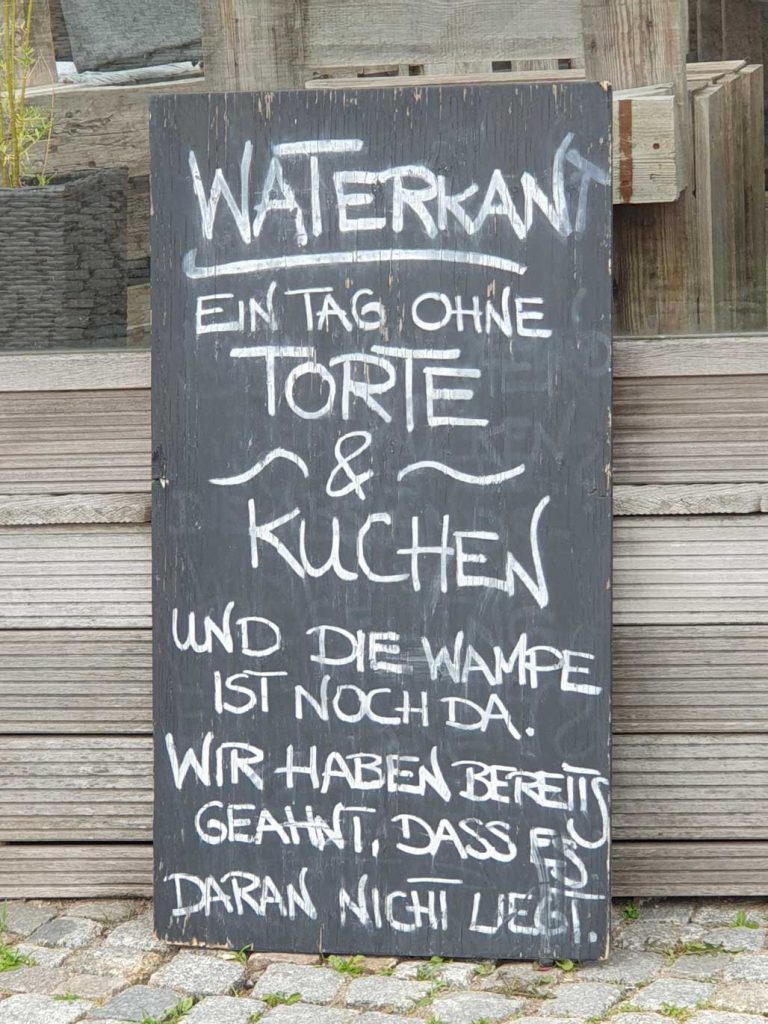 WATERKANT
EIN TAG OHNE
TORTE
&
KUCHEN
UND DIE WAMPE
IST NOCH DA.
WIR HABEN BEREITS
GEAHNT, DASS ES
DARAN NICHT LIEGT.